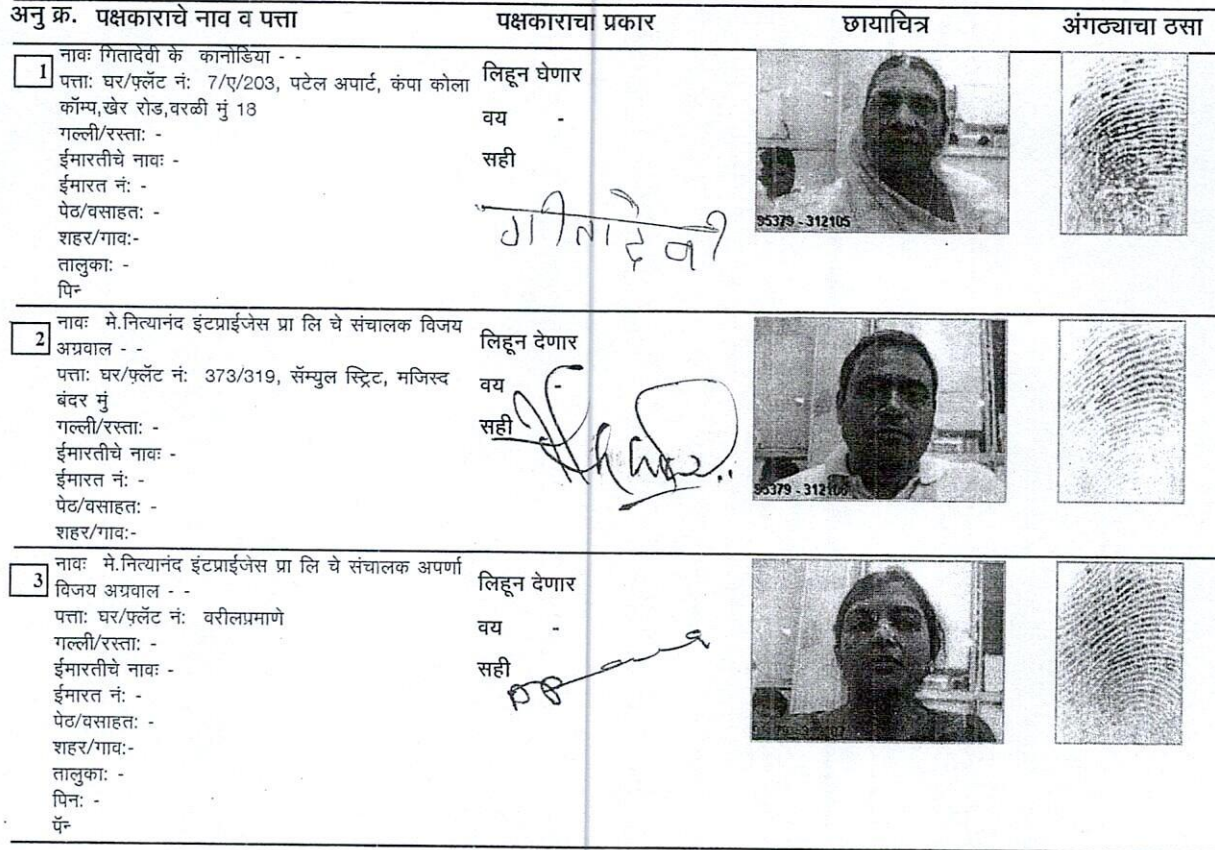 अनु क्र. पक्षकाराचे नाव व पत्ता पक्षकाराचा प्रकार छायाचित्र अंगठ्याचा ठसा
1
नावः गितादेवी के कानोडिया - -
पत्ताः घर/फ़्लॅट नंः 7/ए/203, पटेल अपार्ट, कंपा कोला
कॉम्प,खेर रोड,वरळी मुं 18
गल्ली/रस्ताः -
ईमारतीचे नावः -
ईमारत नंः -
पेठ/वसाहतः -
शहर/गावः-
तालुकाः -
पिन
लिहून घेणार
वय -
सही
गीतादेवी
95379 - 312105
2
नावः मे.नित्यानंद इंटप्राईजेस प्रा लि चे संचालक विजय
अग्रवाल - -
पत्ताः घर/फ़्लॅट नंः 373/319, सॅम्युल स्ट्रिट, मजिस्द
बंदर मुं
गल्ली/रस्ताः -
ईमारतीचे नावः -
ईमारत नंः -
पेठ/वसाहतः -
शहर/गावः-
लिहून देणार
वय -
सही
3
नावः मे.नित्यानंद इंटप्राईजेस प्रा लि चे संचालक अपर्णा
विजय अग्रवाल - -
पत्ताः घर/फ़्लॅट नंः वरीलप्रमाणे
गल्ली/रस्ताः -
ईमारतीचे नावः -
ईमारत नंः -
पेठ/वसाहतः -
शहर/गावः-
तालुकाः -
पिनः -
पॅन
लिहून देणार
वय -
सही